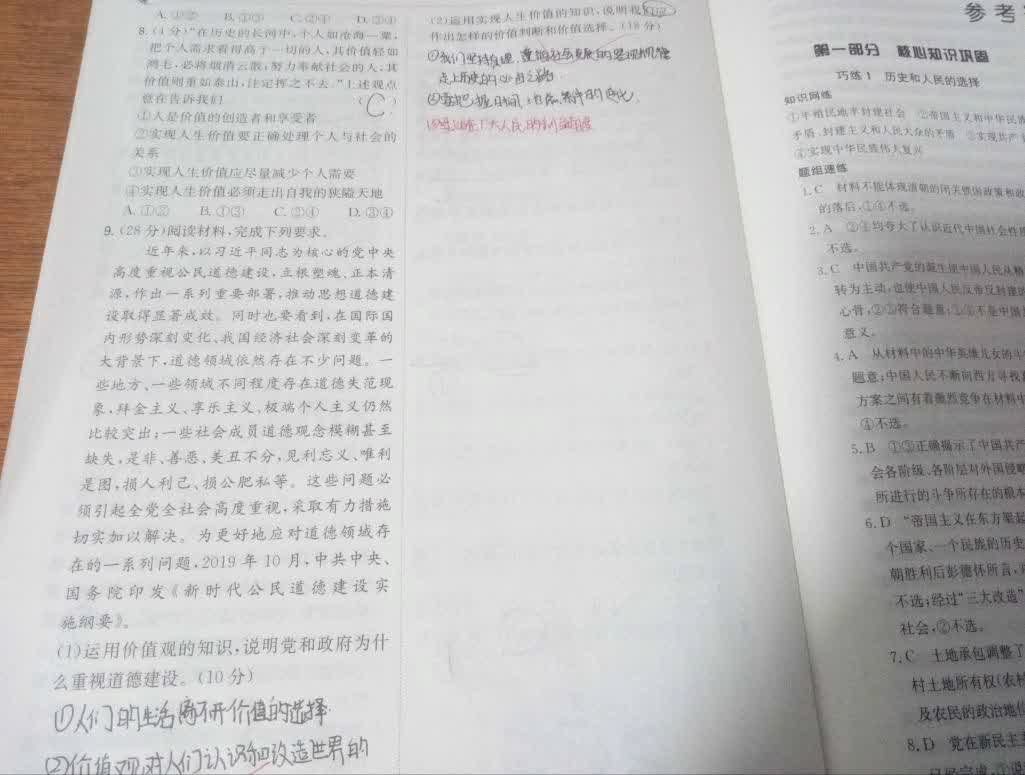 A.①② B.①③ C.②④ D.③④
8.(4分)“在历史的长河中,个人如沧海一粟,
把个人需求看得高于一切的人,其价值轻如
鸿毛,必将烟消云散;努力奉献社会的人,其
价值则重如泰山,注定挥之不去。”上述观点
意在告诉我们 ( C )
①人是价值的创造者和享受者
②实现人生价值要正确处理个人与社会的
关系
③实现人生价值应尽量减少个人需要
④实现人生价值必须走出自我的狭隘天地
A.①② B.①③ C.②④ D.③④
9.(28分)阅读材料,完成下列要求。
近年来,以习近平同志为核心的党中央
高度重视公民道德建设,立根塑魂、正本清
源,作出一系列重要部署,推动思想道德建
设取得显著成效。同时也要看到,在国际国
内形势深刻变化、我国经济社会深刻变革的
大背景下,道德领域依然存在不少问题。一
些地方、一些领域不同程度存在道德失范现
象,拜金主义、享乐主义、极端个人主义仍然
比较突出;一些社会成员道德观念模糊甚至
缺失,是非、善恶、美丑不分,见利忘义、唯利
是图,损人利己、损公肥私等。这些问题必
须引起全党全社会高度重视,采取有力措施
切实加以解决。为更好地应对道德领域存
在的一系列问题,2019年10月,中共中央、
国务院印发《新时代公民道德建设实
施纲要》。
(1)运用价值观的知识,说明党和政府为什
么重视道德建设。(10分)
①人们的生活离不开价值的选择
②价值观对人们认识和改造世界的
(2)运用实现人生价值的知识,说明我们应
作出怎样的价值判断和价值选择。(18分)
①我们坚持真理,遵循社会发展的客观规律
走上历史的
②要把握时间、地点、条件的变化
参考
第一部分 核心知识巩固
巧练1 历史和人民的选择
知识网络
①半殖民地半封建社会 ②帝国主义和中华民族
矛盾、封建主义和人民大众的矛盾 ③实现共产
④实现中华民族伟大复兴
题组速练
1.C 材料不能体现清朝的闭关锁国政策和政
的落后,①④不选。
2.A ②④均夸大了认识近代中国社会性质
不选。
3.C 中国共产党的诞生使中国人民从精
转为主动,也使中国人民反帝反封建的
心骨,②③符合题意;①④不是中国
意义。
4.A 从材料中的中华英雄儿女的斗
题意;中国人民不断向西方寻找
方案之间有着激烈竞争在材料中
④不选。
5.B ①③正确揭示了中国共产
会各阶级、各阶层对外国侵略
所进行的斗争所存在的根本
6.D “帝国主义在东方架起
个国家、一个民族的历史
朝胜利后彭德怀所言,
不选;经过“三大改造”
社会,②不选。
7.C 土地承包调整了
村土地所有权(农村
及农民的政治地位
8.D 党在新民主主